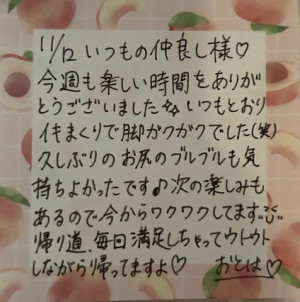 11/12 いつもの仲良し様♡
今週も楽しい時間をありが
とうございました✨ いつもどおり
イキまくりで脚がクガクでした(笑)
久しぶりのお尻のブルブルも気
持ちよかったです♪次の楽しみも
あるので今からワクワクしてます
帰り道、毎回満足しちゃってウトウト
しながら帰ってますよ♡ おとは♡